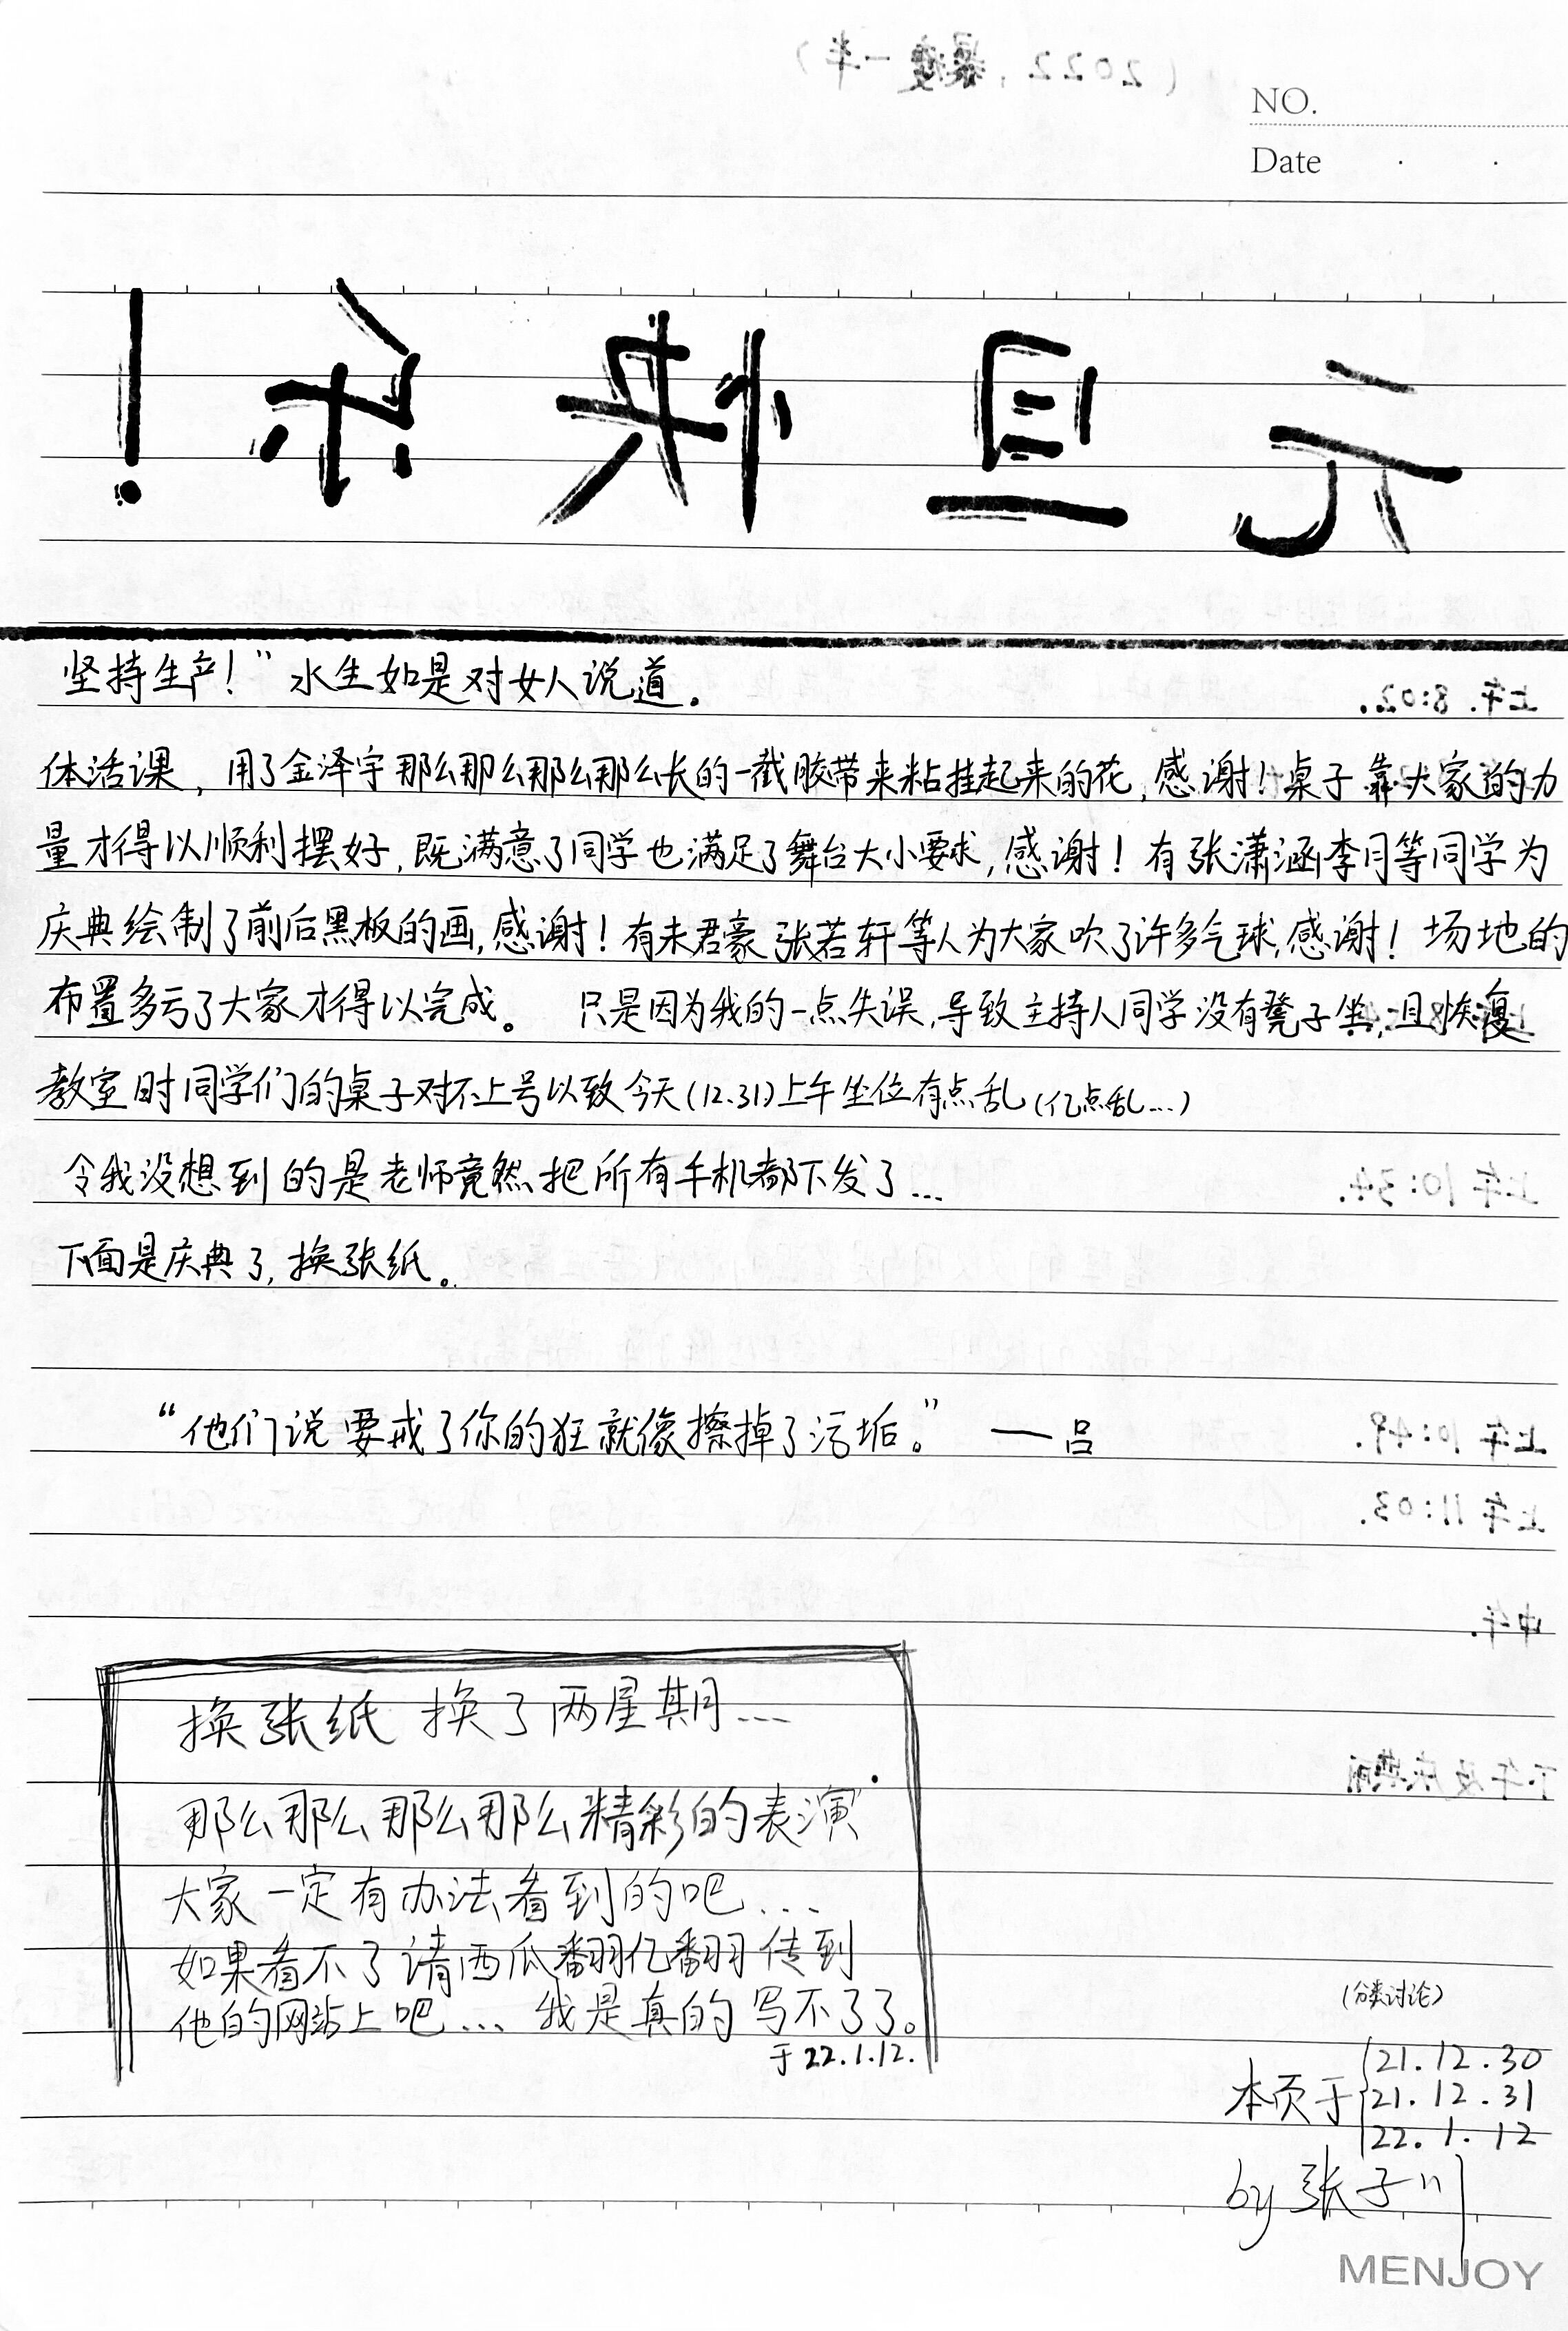 （2022，暴瘦一半）
NO.
Date
元旦快乐！
坚持生产！”水生如是对女人说道。
上午8:02.
体活课，用了金泽宇那么那么那么那么长的一截胶带来粘挂起来的花，感谢！桌子靠大家的力
量才得以顺利摆好，既满意了同学也满足了舞台大小要求，感谢！有张潇涵李月等同学为
庆典绘制了前后黑板的画，感谢！有未君豪张若轩等人为大家吹了许多气球，感谢！场地的
布置多亏了大家才得以完成。 只是因为我的一点失误，导致主持人同学没有凳子坐，且恢复
教室时同学们的桌子对不上号以致今天(12.31)上午坐位有点乱(亿点乱...)
令我没想到的是老师竟然把所有手机都下发了...
上午10:34.
下面是庆典了，换张纸。
“他们说要戒了你的狂就像擦掉了污垢。” ——吕
上午10:49.
上午11:03.
中午.
换张纸换了两星期...
那么那么那么那么精彩的表演
大家一定有办法看到的吧...
如果看不了请西瓜翻亿翻传到
他的网站上吧... 我是真的写不了了。
于22.1.12.
下午及庆典前
(分类讨论)
本页于
21.12.30
21.12.31
22.1.12
by 张子川
MENJOY